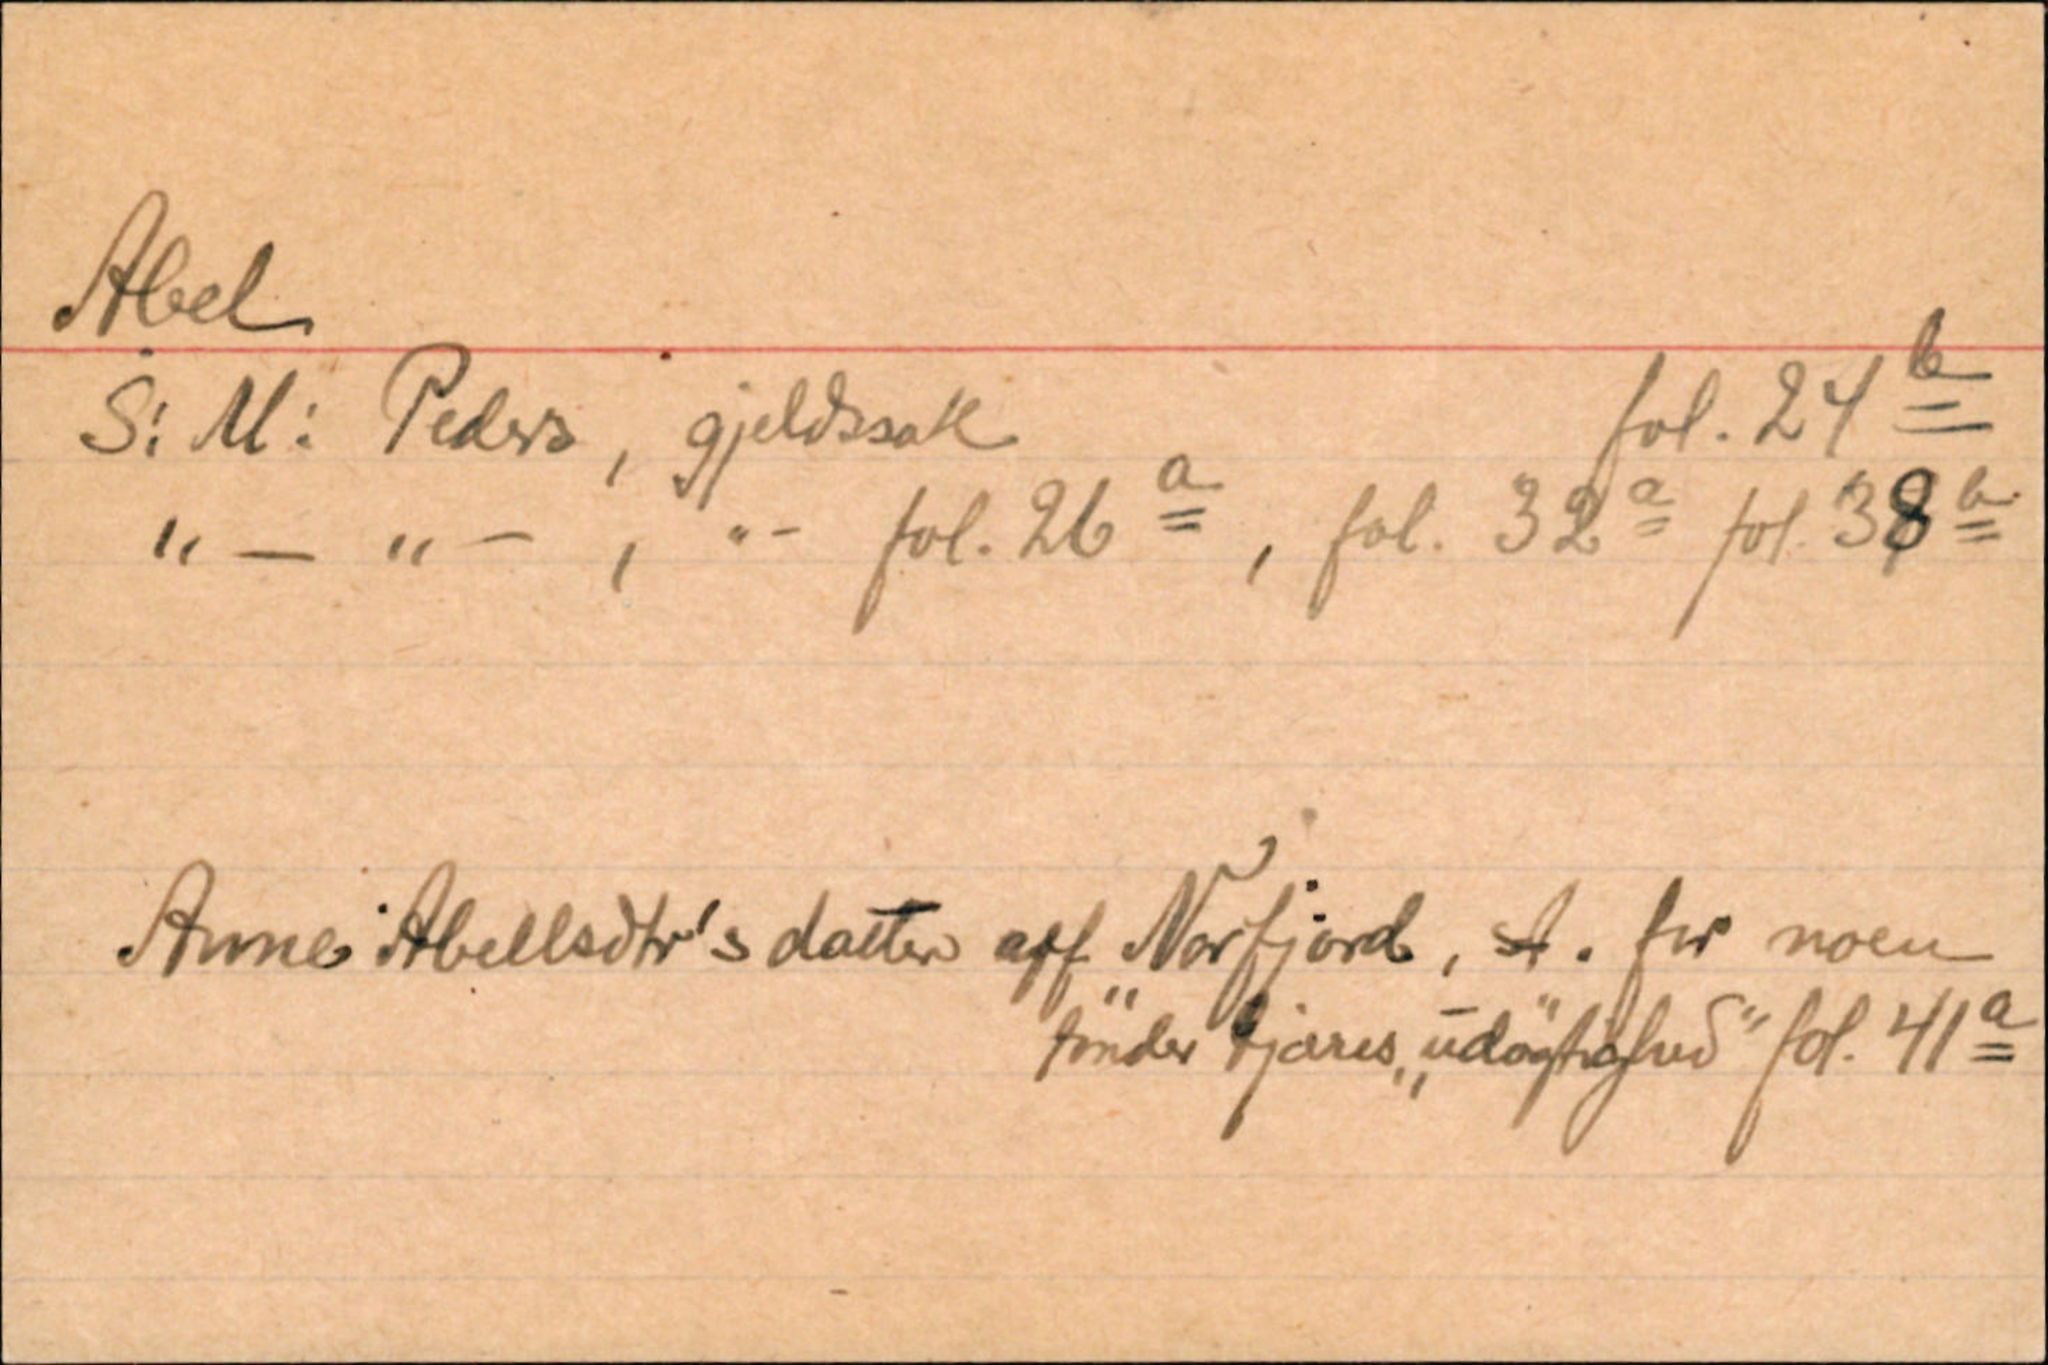 Abel
S: M: Peders, gjeldssak fol. 24 b
" — " — , " - fol. 26 a, fol. 32 a fol. 38 b
Anne Abellsdtr's datter aff Norfjord, st. for noen
tönder tjæres „udögtighed" fol. 41 a